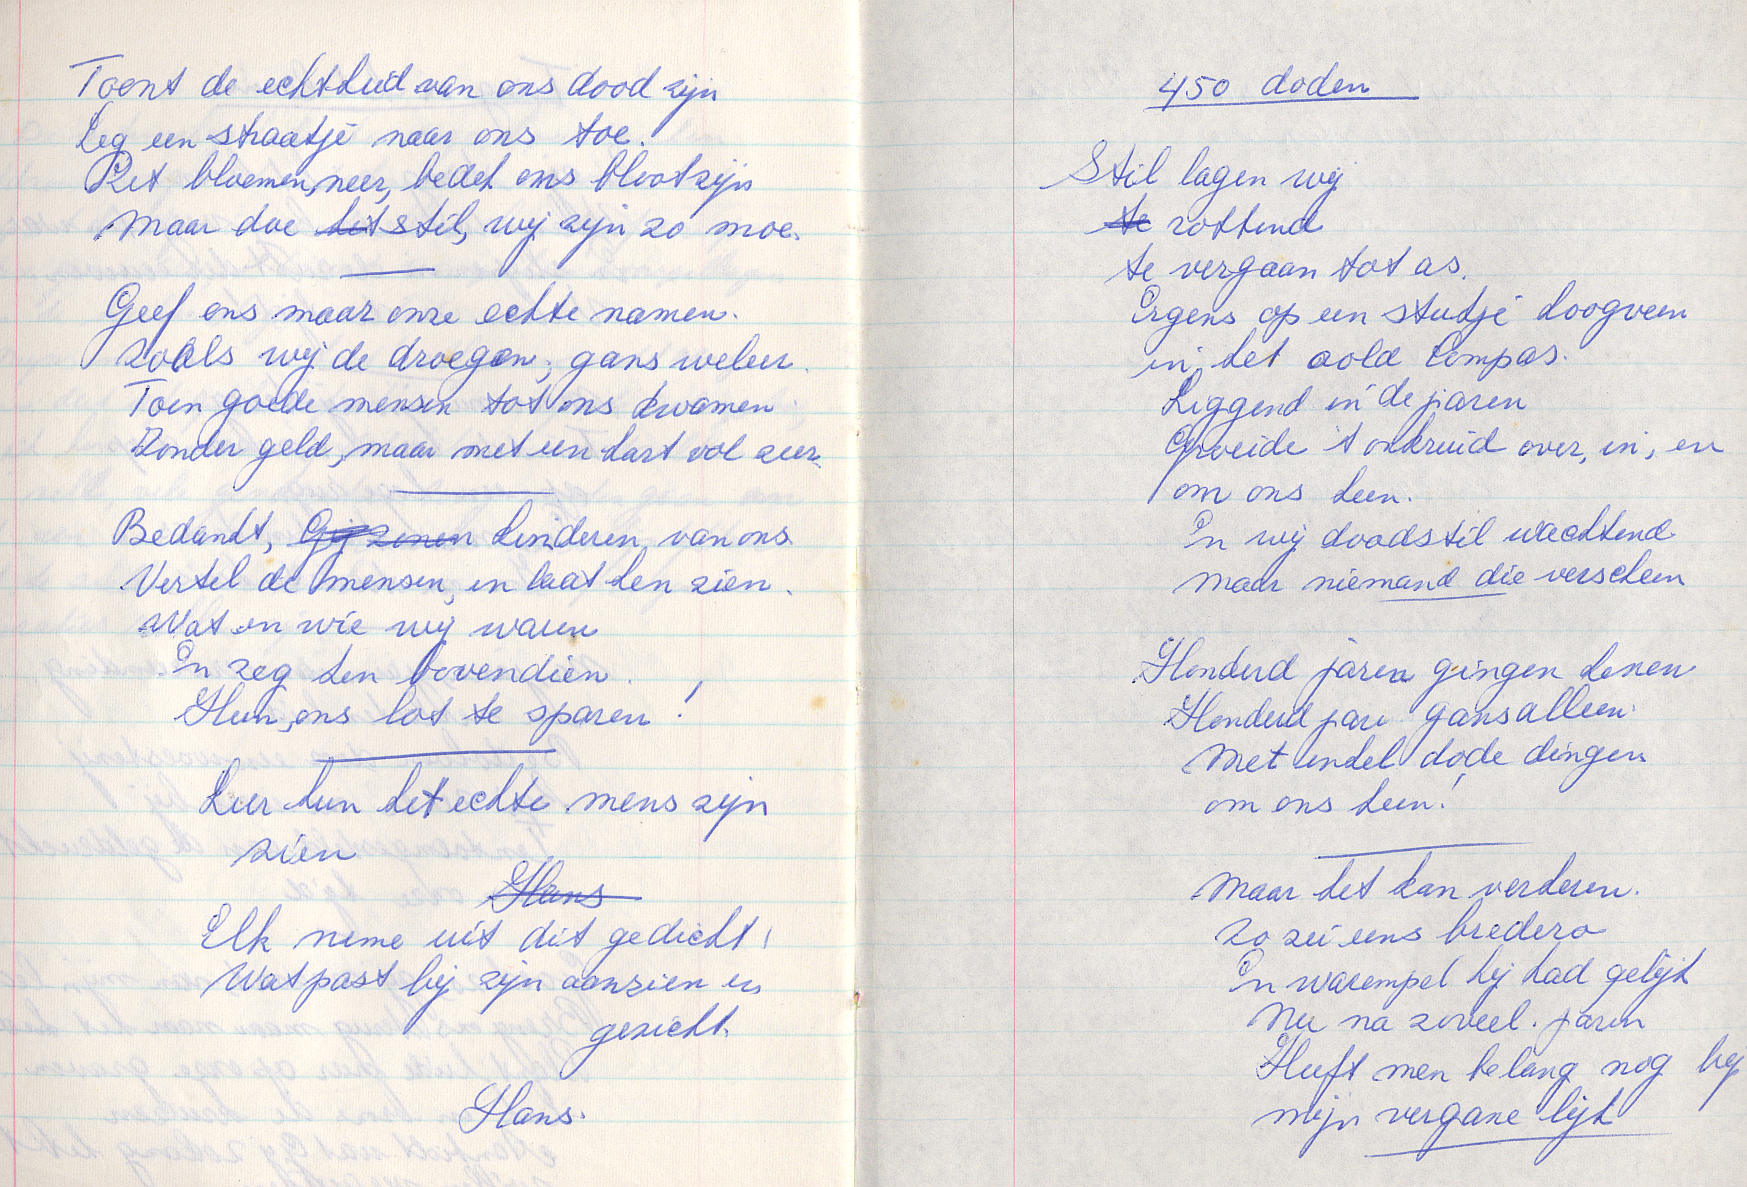 Toont de echtheid van ons dood zijn
Leg een straatje naar ons toe.
Zet bloemen, neer, bedek ons blootzijn
Maar doe het stil, wij zijn zo moe.
Geef ons maar onze echte namen.
Zoals wij de droegen, gans weleer.
Toen goede mensen tot ons kwamen
Zonder geld, maar met een hart vol zeer.
Bedankt, Gij zonen kinderen van ons
Vertel de mensen, en laat hen zien.
Wat en wie wij waren
En zeg hen bovendien.
Hun, ons lot te sparen!
Leer hun het echte mens zijn
zien
Hans
Elk neme uit dit gedicht!
Wat past bij zijn aanzien en
gezicht.
Hans.
450 doden
Stil lagen wij
te rottend
te vergaan tot as.
Ergens op een stukje hoogveen
in, het oold kompas.
Liggend in de jaren
Groeide 't onkruid over, in, en
om ons heen.
En wij doodstil wachtend
maar niemand die verscheen
Honderd jaren gingen henen
Honderd jare gansalleen
Met enkel dode dingen
om ons heen!
Maar het kan verkeren.
Zo zei eens bredero
En warempel hij had gelijk
Nu na zoveel. jaren
Heeft men belang nog bij
mijn vergane lijk